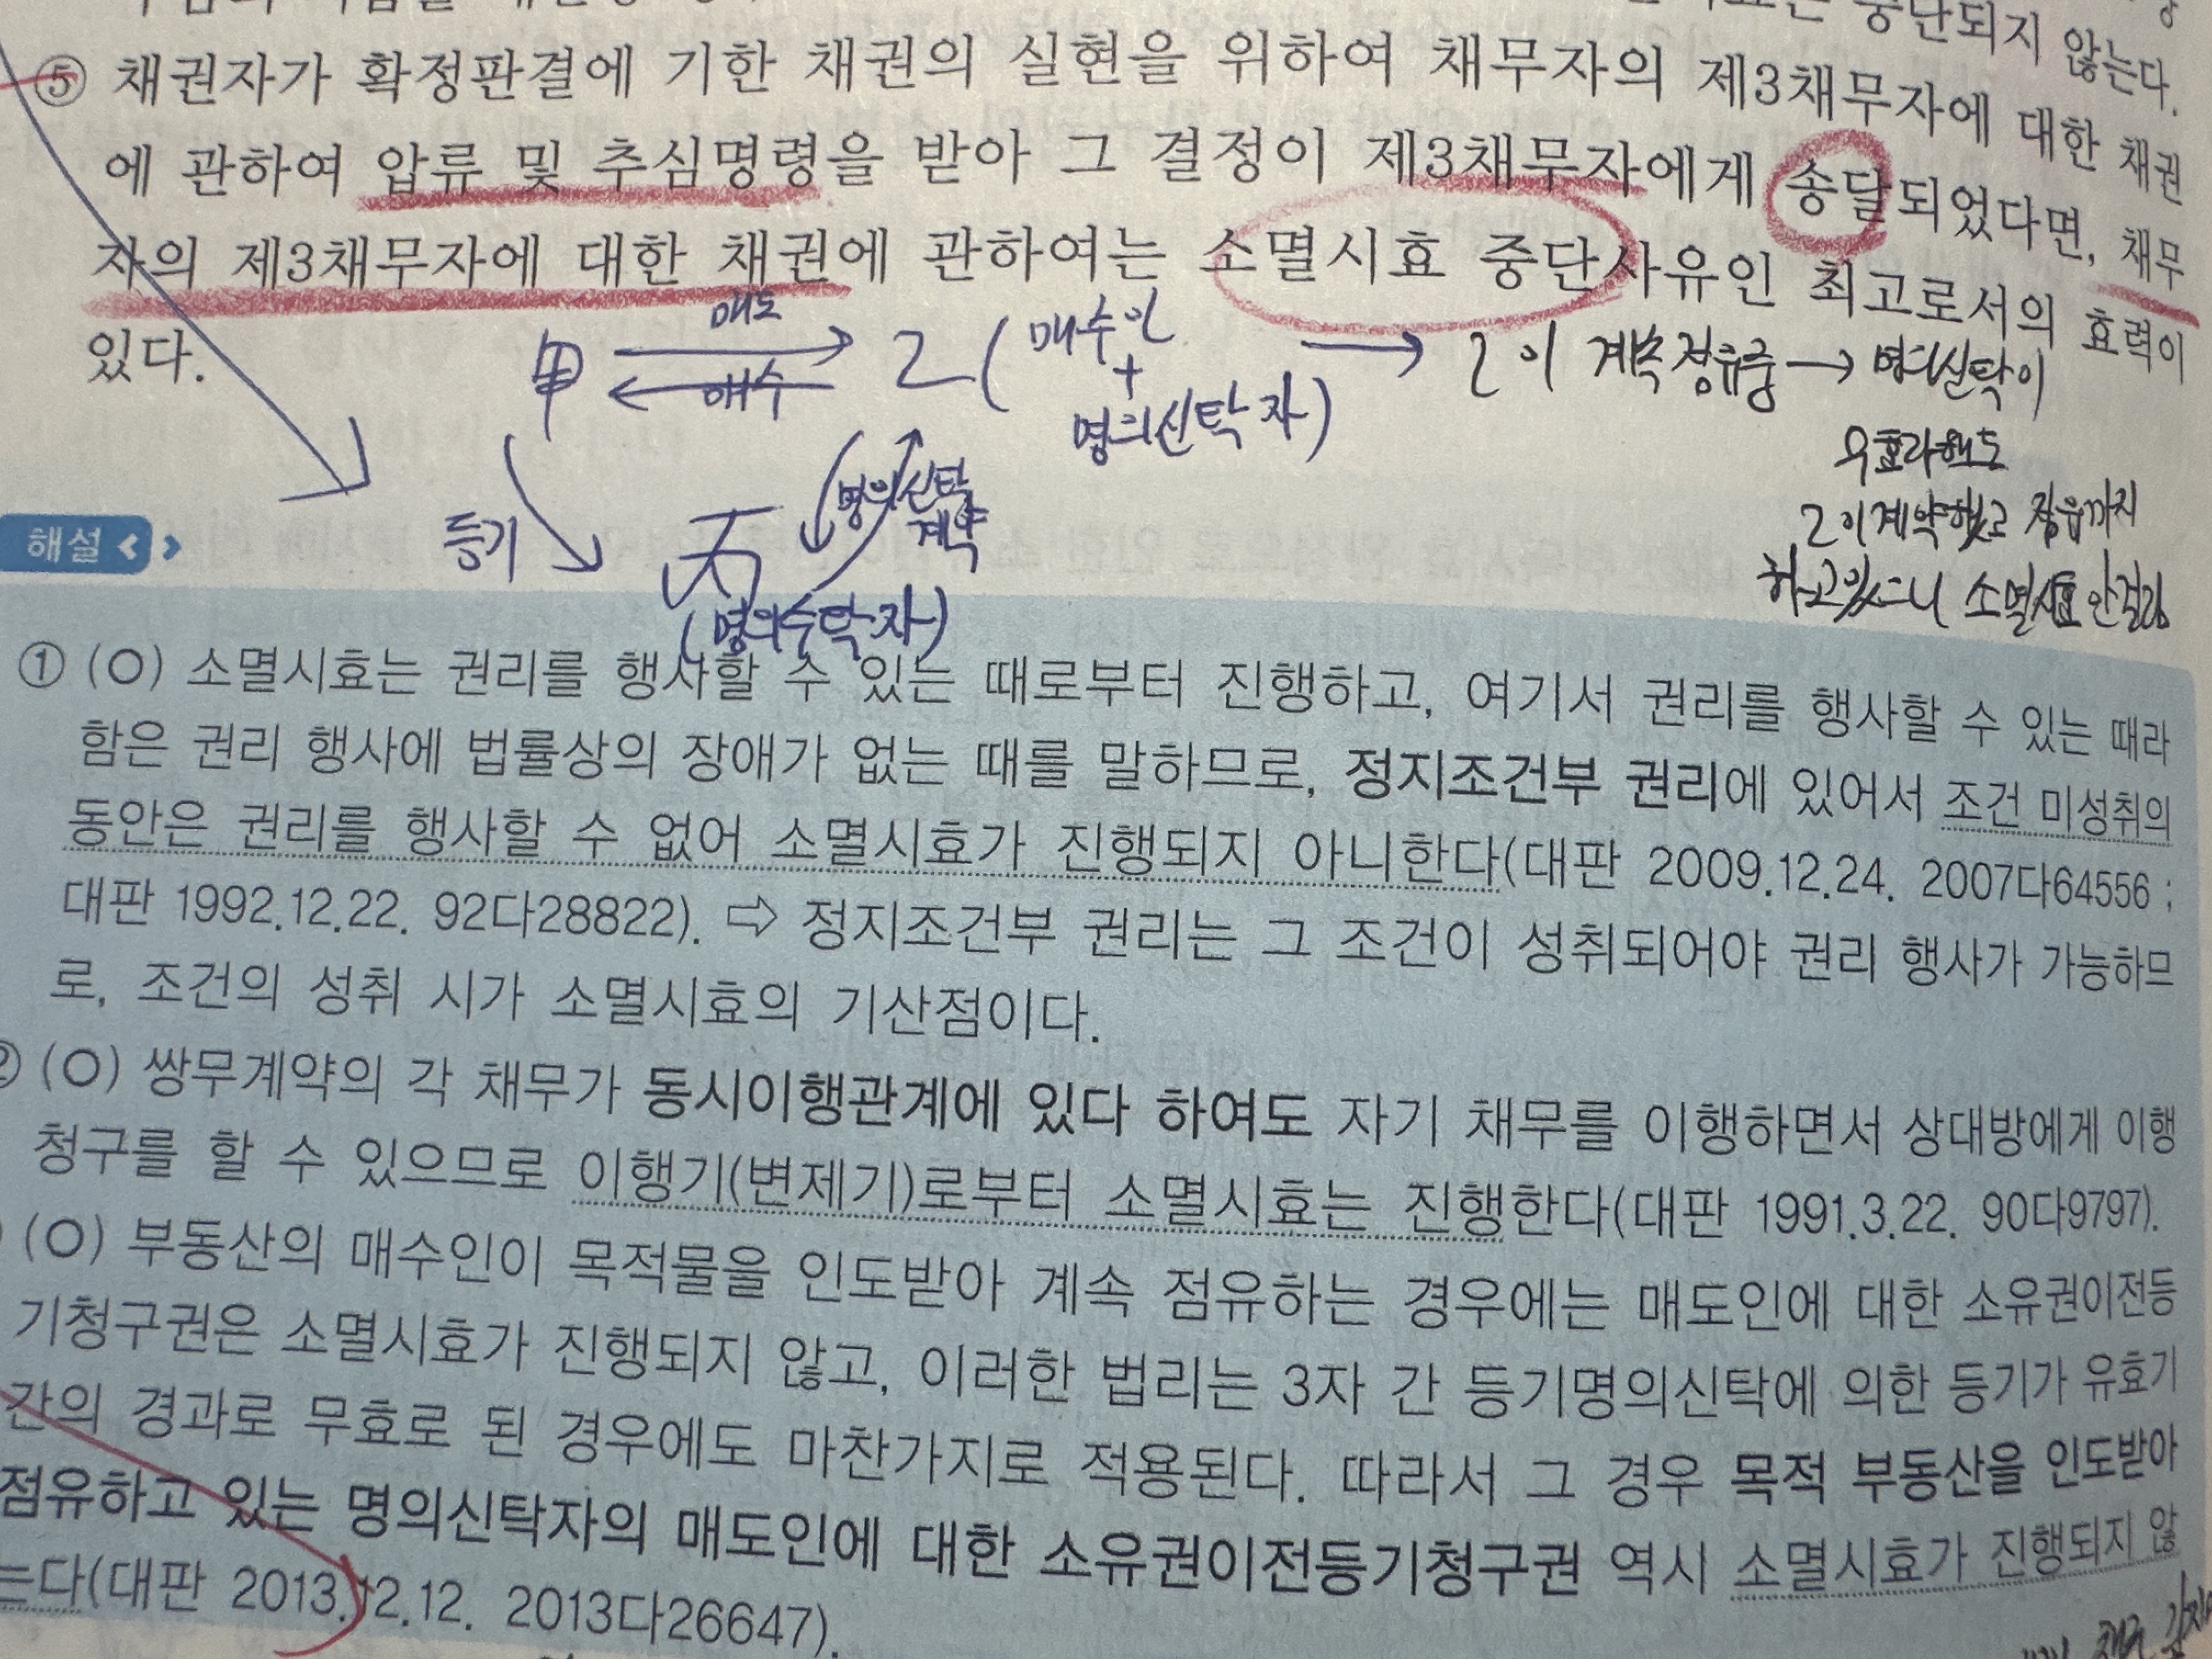 중단되지 않는다.
⑤ 채권자가 확정판결에 기한 채권의 실현을 위하여 채무자의 제3채무자에 대한 채권
에 관하여 압류 및 추심명령을 받아 그 결정이 제3채무자에게 송달되었다면, 채무
자의 제3채무자에 대한 채권에 관하여는 소멸시효 중단사유인 최고로서의 효력이
있다.
매도
甲 → 乙 ( 매수인
매수
+
명의신탁자)
→ 乙이 계속 점유중 → 명의신탁이
유효라해도
乙이 계약했고 점유까지
하고있으니 소멸시효 안걸림
등기
명의신탁
계약
丙
(명의수탁자)
해설
① (O) 소멸시효는 권리를 행사할 수 있는 때로부터 진행하고, 여기서 권리를 행사할 수 있는 때라
함은 권리 행사에 법률상의 장애가 없는 때를 말하므로, 정지조건부 권리에 있어서 조건 미성취의
동안은 권리를 행사할 수 없어 소멸시효가 진행되지 아니한다(대판 2009.12.24. 2007다64556 ;
대판 1992.12.22. 92다28822). ⇨ 정지조건부 권리는 그 조건이 성취되어야 권리 행사가 가능하므
로, 조건의 성취 시가 소멸시효의 기산점이다.
② (O) 쌍무계약의 각 채무가 동시이행관계에 있다 하여도 자기 채무를 이행하면서 상대방에게 이행
청구를 할 수 있으므로 이행기(변제기)로부터 소멸시효는 진행한다(대판 1991.3.22. 90다9797).
(O) 부동산의 매수인이 목적물을 인도받아 계속 점유하는 경우에는 매도인에 대한 소유권이전등
기청구권은 소멸시효가 진행되지 않고, 이러한 법리는 3자 간 등기명의신탁에 의한 등기가 유효기
간의 경과로 무효로 된 경우에도 마찬가지로 적용된다. 따라서 그 경우 목적 부동산을 인도받아
점유하고 있는 명의신탁자의 매도인에 대한 소유권이전등기청구권 역시 소멸시효가 진행되지 않
는다(대판 2013.12.12. 2013다26647).